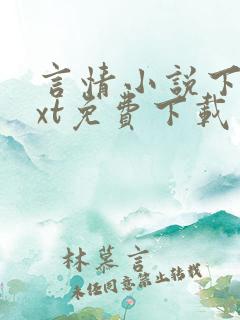 言情小說下
xt免費下載
林慕言
未经同意禁止转载